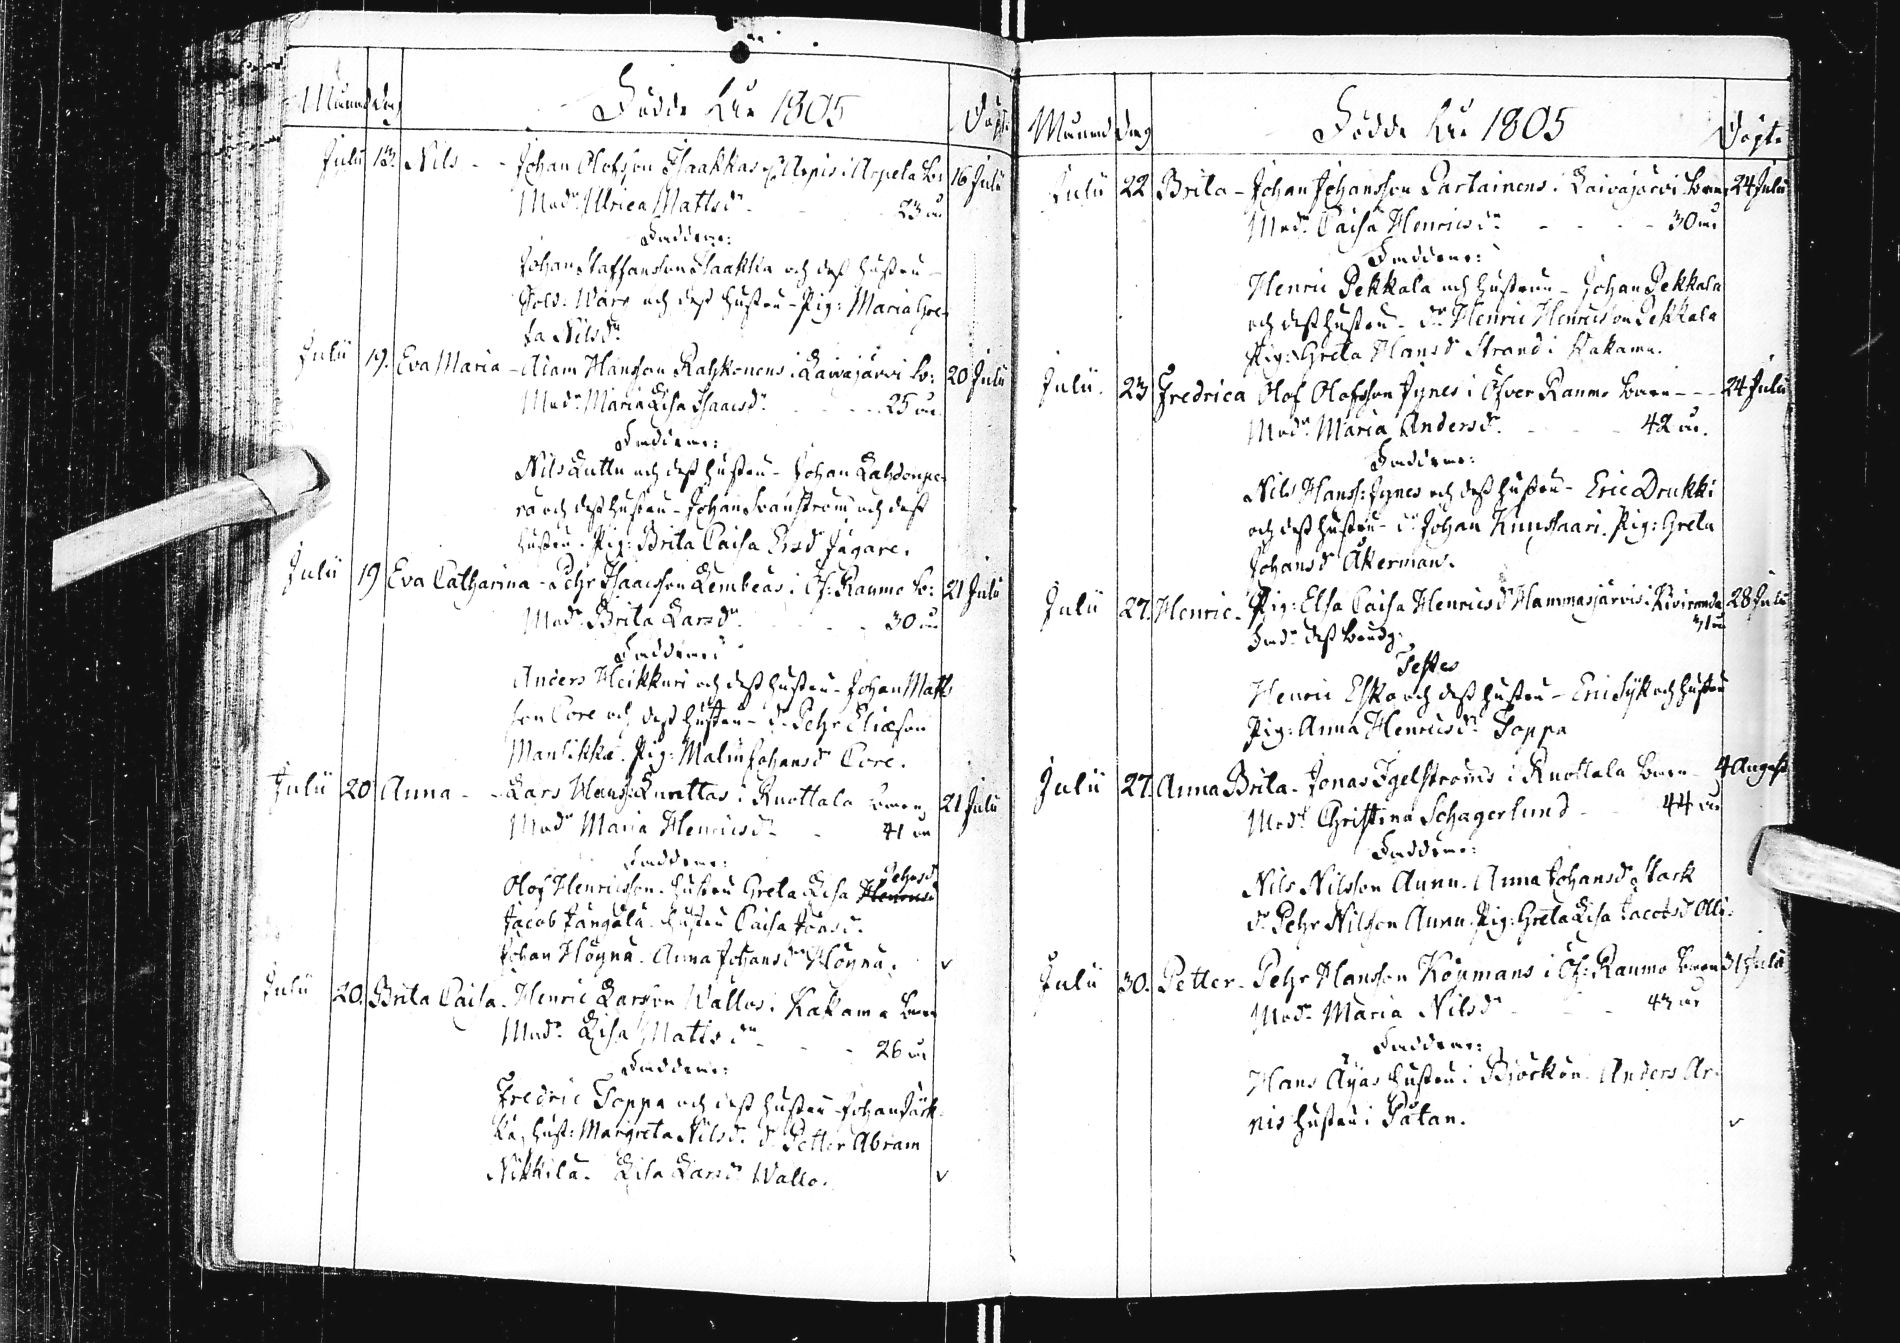 Månad Dag Födde Åhr 1805 Döpte
Julii 13. Nils - - Johan Olofsson Isaakkas Arpis i Arpela B: 16 Julii
Mod:r Ulrica Mattsd:r 23 år
Faddrar:
Johan Staffansson Isaakka och dess hustru -
Sold: Ware och dess hustru - Pig: Maria Gre-
ta Nilsd:r
Julii 19. Eva Maria - Adam Hansson Rahkonens i Laivajärvi b: 20 Julii
Mod:r Maria Lisa Isaacsd:r 25 år.
Faddrar:
Nils Luttu och dess hustru - Johan Lahdenpe-
rä och dess hustru - Johan Svanström och dess
hustru. Pig: Brita Caisa Ersd: Jägare.
Julii 19 Eva Catharina - Pehr Isaacsson Lembeas i Öf: Raumo b: 21 Julii
Mod:r Brita Larsd:r 30 år
Faddrar:
Anders Heikkuri och dess hustru - Johan Matts
son Core och dess hustru - d:r Pehr Eliæson
Manlikka. Pig: Malin Johansd:r Core.
Julii 20 Anna - - Lars Hanss: i Knottala barn 21 Julii
Mod:r Maria Henricsd:r 41 år
Faddrar:
Olof Henricsson. hustru Greta Lisa Henricsd Pehrsd
Jacob Jungala. hustru Caisa
Johan Höyna. Anna Johansd:r Höyna. v
Julii 20. Brita Caisa. Henric Larsson Wallos i Kakama barn
Mod:r Lisa Mattsd:r 26 år
Faddrar:
Fredric Toppa och dess hustru Johan Järk-
kä, hust: Margreta Nilsd:r d:r Petter Abram
Nikkilä. Lisa Larsd:r Wallo. v
Månad Dag Födde Åhr 1805 Döpte
Julii 22. Brita - Johan Johansson Partainens i Laivajärvi barn 24 Julii
Mod:r Caisa Henricsd:r 30 år
Faddrar:
Henric Pekkala och hustrun - Johan Pekkala
och dess hustru - d:r Henric Henricsson Pekkala
Pig: Greta Hansd:r Strand i Kakama.
Julii. 23 Fredrica Olof Olofsson Jynes i Öfver Raumo barn - - 24 Julii
Mod:r Maria Andersd:r 42 år.
Faddrar:
Nils Hanss: Jynes och dess hustru - Eric Drukki
och dess hustru - d:r Johan Kunsaari. Pig: Greta
Johansd:r Åkerman.
Julii 27. Henric - Pig: Elsa Caisa Henricsd:r Hammasjärvis i Kiviranda 28 Julii
31 år
Testes
Henric Esko och dess hustru - Eric Syk och hustru
Pig: Anna Henricsd:r Toppa
Julii 27. Anna Brita - Jonas Igelströms i Knottala barn - 4 August
Mod:r Christina Schagerlund 44 år
Faddrar:
Nils Nilsson Aunu. Anna Johansd:r Stark
d:r Pehr Nilsson Aunu. Pig: Greta Lisa Jacobsd: Olli.
Julii 30. Petter - Pehr Hansson Köymans i Öf: Raumo barn 31 Julii
Mod:r Maria Nilsd:r 43 år
Faddrar:
Hans Äyäs hustru i Björkön. Anders Ar-
nis hustru i Påtan. v